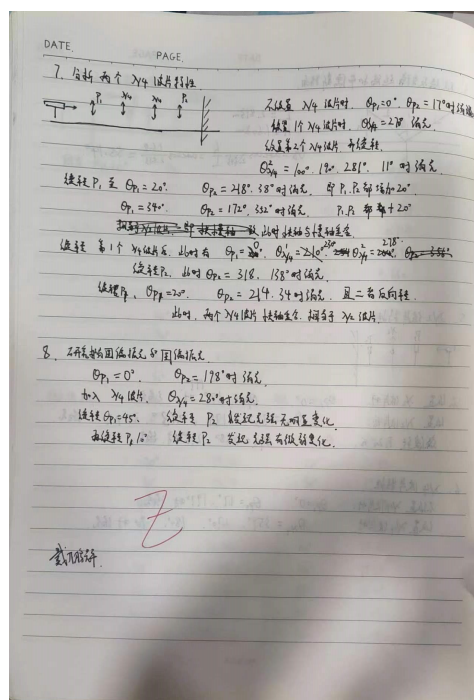 DATE.
PAGE.
7. 分析两个 λ/4 波片特性.
P₁ λ/4 λ/4 P₂
不放置 λ/4 波片时. θp₁=0°. θp₂=17°时消光
放置1个 λ/4 波片时. θλ/4=278° 消光.
放置第2个 λ/4 波片 并旋转.
θ²λ/4=100°. 190°. 281°. 11° 时消光
旋转 P₁ 至 θp₁=20°. θp₂=218°. 38°时消光. 即 P₁.P₂ 都增加20°.
θp₁=340°. θp₂=172°. 352°时消光. P₁.P₂ 都 20°
此时快轴与慢轴重合
旋转 第1个 λ/4 波片后. 此时有 θp₁=0°. 278°
旋转P₂. 此时 θp₂=318. 138°时消光.
θp₁=20°. θp₂=214. 34时消光. 且二者反向转.
此时, 两个 λ/4 波片 快轴重合. 相当于 λ/2 波片.
8. 圆偏振光和 圆偏振光
θp₁=0° θp₂=198°时消光.
加入 λ/4 波片 θλ/4=280°时消光.
旋转 θp₁=45°. 旋转 P₂ 发现光强无明显变化.
再旋转 P₁ 10° 旋转 P₂ 发现 光强有微弱变化.